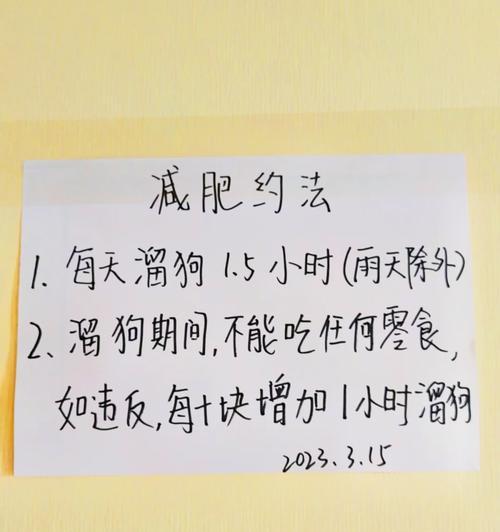 减肥约法
1. 每天溜狗1.5小时(雨天除外)
2、溜狗期间,不能吃任何零食,
如违反,每十块增加1小时溜狗
2023.3.15